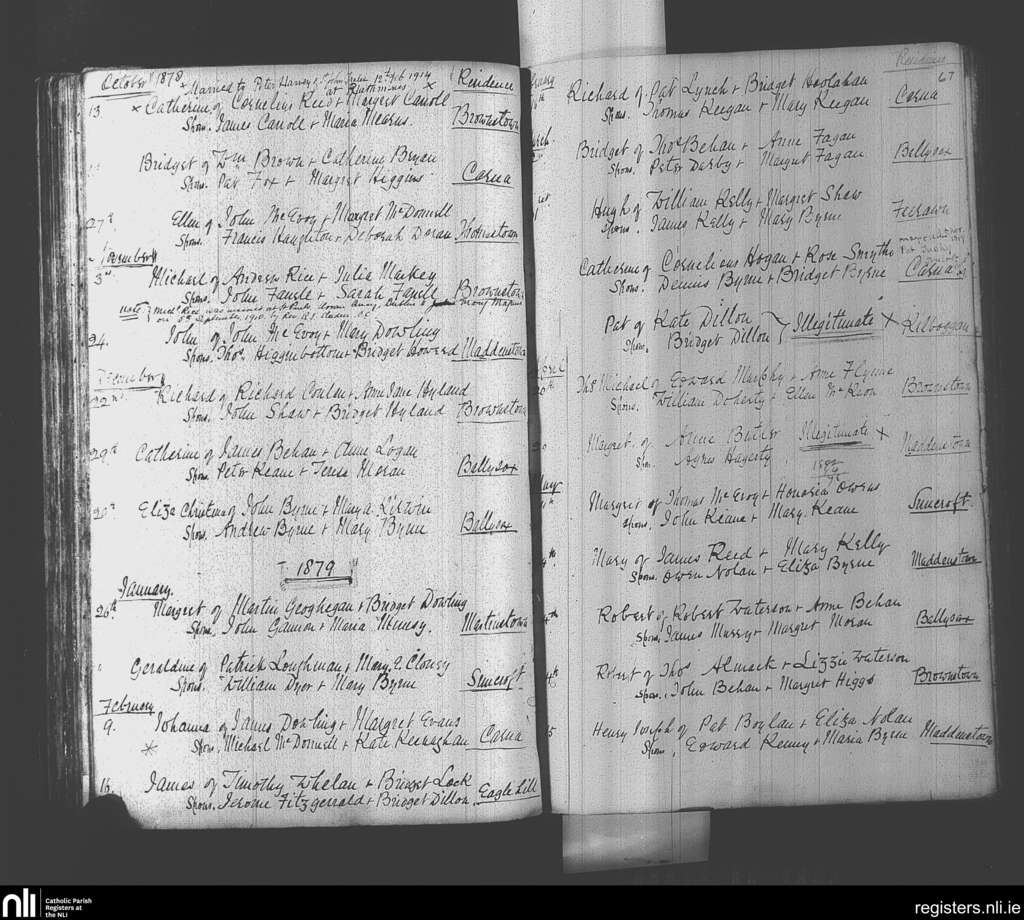 October 1878
Married to Peter Harvey at Rathmines 12th Feb 1914
Residence
13. × Catherine of Cornelius Reed + Margret Carroll ×
Spons. James Carroll + Maria Mearns. Brownstown
" Bridget of Wm Brown + Catherine Bryan
Spons. Pat Fox + Margret Higgins Carna
27th Ellen of John McEvoy + Margret McDonnell
Spons. Francis Haughton + Deborah Doran Thomastown
November
3rd Michael of Andrew Rice + Julia Markey
Spons. John Farrell + Sarah Farrell Brownstown
Note Michl Rice was married
on September 1910. by Rev.
24. John of John McEvoy + Mary Dowling
Spons. Thos. Higginbottom + Bridget Howard Maddenstown
December
22nd Richard of Richard Conlan + Ann Jane Hyland
Spons. John Shaw + Bridget Hyland Brownstown
29th Catherine of James Behan + Anne Logan
Spons. Peter Keane + Teresa Moran Ballysax
29th Eliza Christina of John Byrne + Mary A. Kirwin
Spons. Andrew Byrne + Mary Byrne Ballysax
1879
January.
26th Margret of Martin Geoghegan + Bridget Dowling
Spons. John Gannon + Maria Menesy. Martinstown
" Geraldine of Patrick Loughman + Mary A. Clowsy
Spons. William Dyer + Mary Byrne Suncroft
February
9. Johanna of James Dowling + Margret Evans
Spons. Michael McDonnell + Kate Keenaghan Carna
16. James of Timothy Whelan + Bridget Lock
Spons. Jerome Fitzgerrald + Bridget Dillon. Eagle Hill
Residence
67
Richard of Pat Lynch + Bridget Hoolahan
Spons. Thomas Keegan + Mary Keegan Carna
Bridget of Thos Behan + Anne Fagan
Spons. Peter Darby + Margret Fagan Ballysax
Hugh of William Kelly + Margret Shaw
Spons. James Kelly + Mary Byrne Feerawn
Catherine of Cornelious Hogan + Rose Smythe
Spons. Dennis Byrne + Bridget Byrne Carna
Pat of Kate Dillon
Spons. Bridget Dillon } Illegitimate × Kilboggan
April
20th Thos Michael of Edward Murphy + Anne Flynne
Spons. William Doherty + Ellen McKion Brownstown
Margret. of Anne Butler Illegitimate ×
Spon. Agnes Hagerty Maddenstown
May
Margret of Thomas McEvoy + Honoria Owens
Spons. John Keane + Mary. Keane Suncroft.
Mary of James Reed + Mary Kelly
Spons. Owen Nolan + Eliza Byrne Maddenstown
Robert of Robert Waterson + Anne Behan
Spons. James Murry + Margret Moran Ballysax
Robert of Thos Almack + Lizzie Waterson
Spons. John Behan + Margret Higgs Brownstown
Henry Joseph of Pat Boylan + Eliza Nolan
Spons. Edward Kenny + Maria Byrne Maddenstown
nli Catholic Parish
Registers at
the NLI
registers.nli.ie